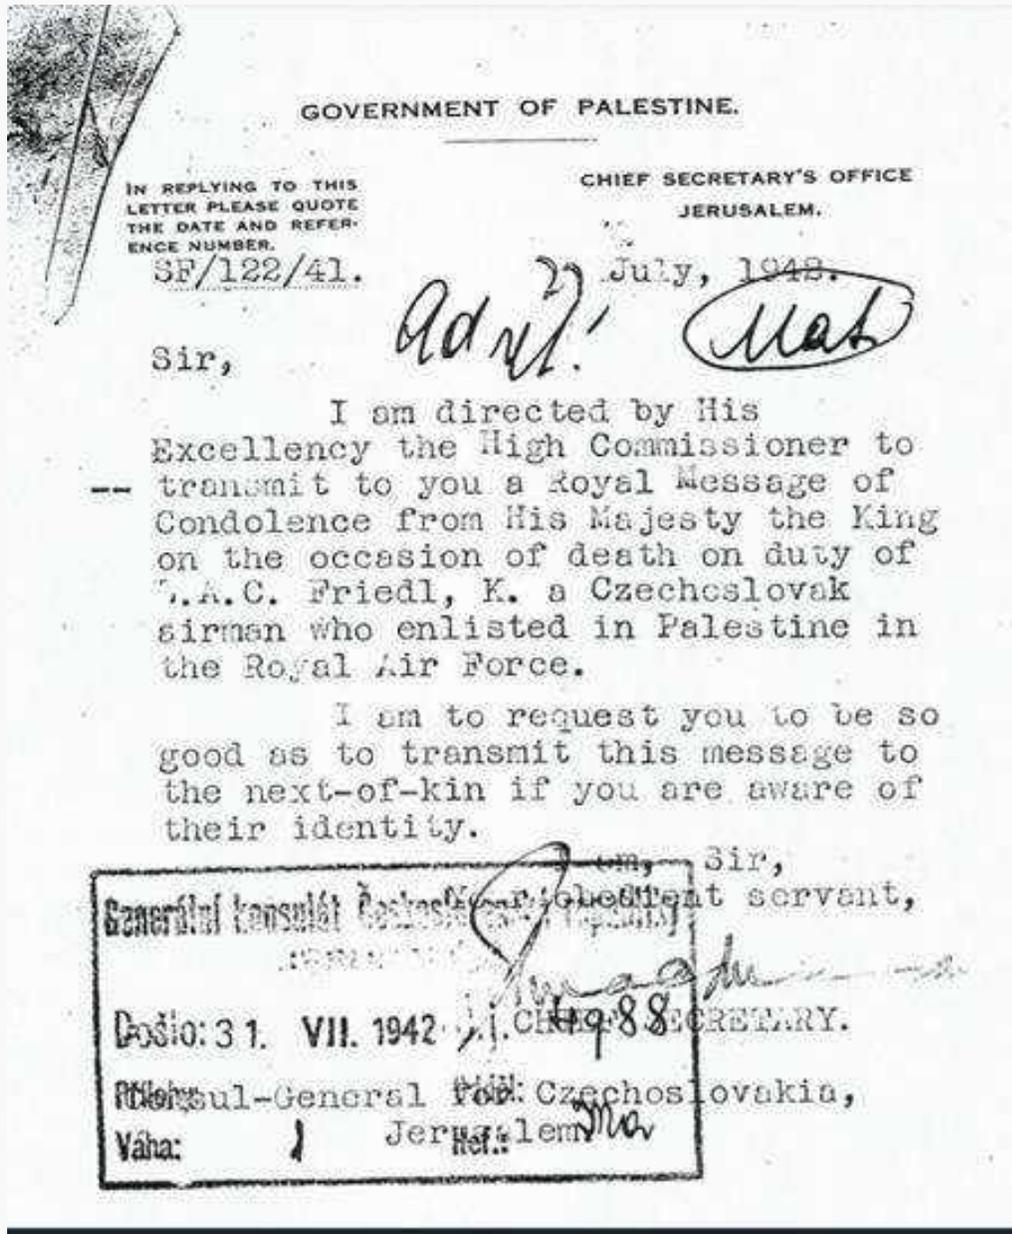 GOVERNMENT OF PALESTINE.
IN REPLYING TO THIS
LETTER PLEASE QUOTE
THE DATE AND REFER-
ENCE NUMBER.
SF/122/41.
CHIEF SECRETARY'S OFFICE
JERUSALEM.
July, 1942.
Sir,
I am directed by His
Excellency the High Commissioner to
-- transmit to you a Royal Message of
Condolence from His Majesty the King
on the occasion of death on duty of
A.C. Friedl, K. a Czechoslovak
airman who enlisted in Palestine in
the Royal Air Force.
I am to request you to be so
good as to transmit this message to
the next-of-kin if you are aware of
their identity.
I am, Sir,
obedient servant,
CHIEF SECRETARY.
Consul-General for Czechoslovakia,
Jerusalem
Generální konsulát
Došlo: 31. VII. 1942 4988
Přílohy:
Váha: 1 Ref.: